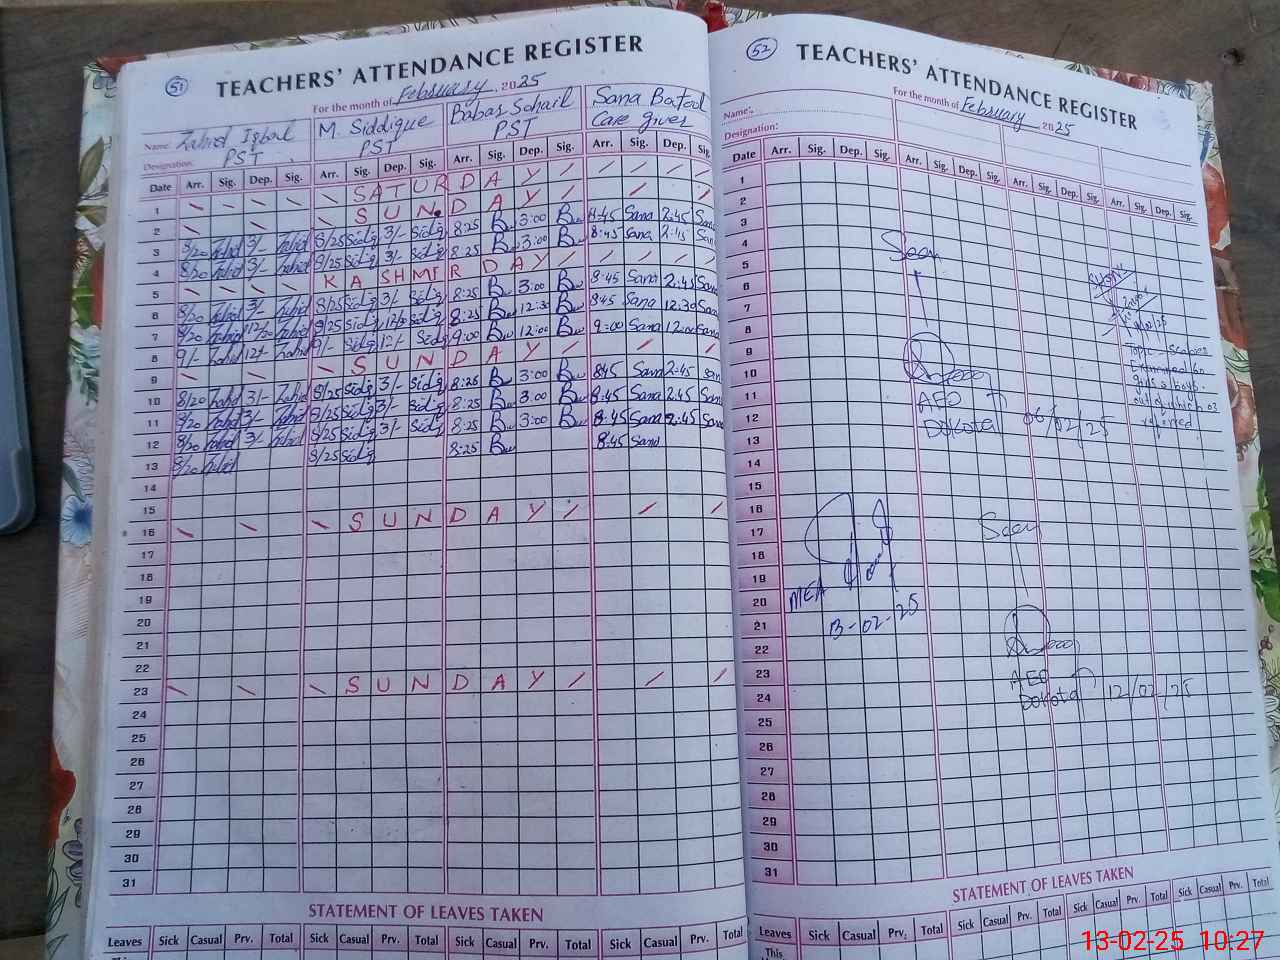 51
TEACHERS' ATTENDANCE REGISTER
For the month of February 2025
Name: Zahid Iqbal M. Siddique Babar Sohail Sana Batool
Designation: PST PST PST Care giver
Date Arr. Sig. Dep. Sig. Arr. Sig. Dep. Sig. Arr. Sig. Dep. Sig. Arr. Sig. Dep. Sig.
1 SATURDAY
2 SUNDAY
3 8/20 Zahid 3/- Zahid 8/25 Sidiq 3/- Sidiq 8:25 3:00 8:45 Sana 2:45 Sana
4 8/20 Zahid 3/- Zahid 8/25 Sidiq 3/- Sidiq 8:25 3:00 8:45 Sana 2:45 Sana
5 KASHMIR DAY
6 8/20 Zahid 3/- Zahid 8/25 Sidiq 3/- Sidiq 8:25 3:00 8:45 Sana 2:45 Sana
7 8/20 Zahid Zahid 8/25 Sidiq Sidiq 8:25 12:30 8:45 Sana 12:30 Sana
8 9/- Zahid 12/- Zahid 9/- Sidiq 12/- Sidiq 9:00 12:00 9:00 Sana 12:00 Sana
9 SUNDAY
10 8/20 Zahid 3/- Zahid 8/25 Sidiq 3/- Sidiq 8:25 3:00 8:45 Sana 2:45 Sana
11 8/20 Zahid 3/- Zahid 8/25 Sidiq 3/- Sidiq 8:25 3:00 8:45 Sana 2:45 Sana
12 8/20 Zahid 3/- Zahid 8/25 Sidiq 3/- Sidiq 8:25 3:00 8:45 Sana 2:45 Sana
13 8/20 Zahid 8/25 Sidiq 8:25 8:45 Sana
14
15
16 SUNDAY
17
18
19
20
21
22
23 SUNDAY
24
25
26
27
28
29
30
31
STATEMENT OF LEAVES TAKEN
Leaves Sick Casual Prv. Total Sick Casual Prv. Total Sick Casual Prv. Total Sick Casual Prv. Total
This
52
TEACHERS' ATTENDANCE REGISTER
For the month of February 2025
Name:
Designation:
Date Arr. Sig. Dep. Sig. Arr. Sig. Dep. Sig. Arr. Sig. Dep. Sig. Arr. Sig. Dep. Sig.
1
2
3
4 Seen
5
6
7
8
9 Topic - Scabies
10 Examined
11 girls & boys.
AEO out of which 03
12 Dokota 06/02/25 referred
13
14
15
16
17 Seen
18
19
20 MEA
21 13-02-25
22
23 AEO
24 Dokota 12/02/25
25
26
27
28
29
30
31
STATEMENT OF LEAVES TAKEN
Leaves Sick Casual Prv. Total Sick Casual Prv. Total Sick Casual Prv. Total Sick Casual Prv. Total
This
13-02-25 10:27